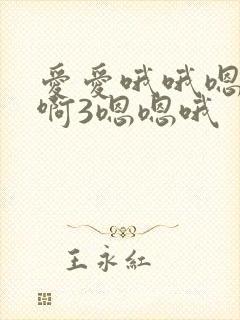 愛愛哦哦嗯
啊3嗯嗯哦
王永紅